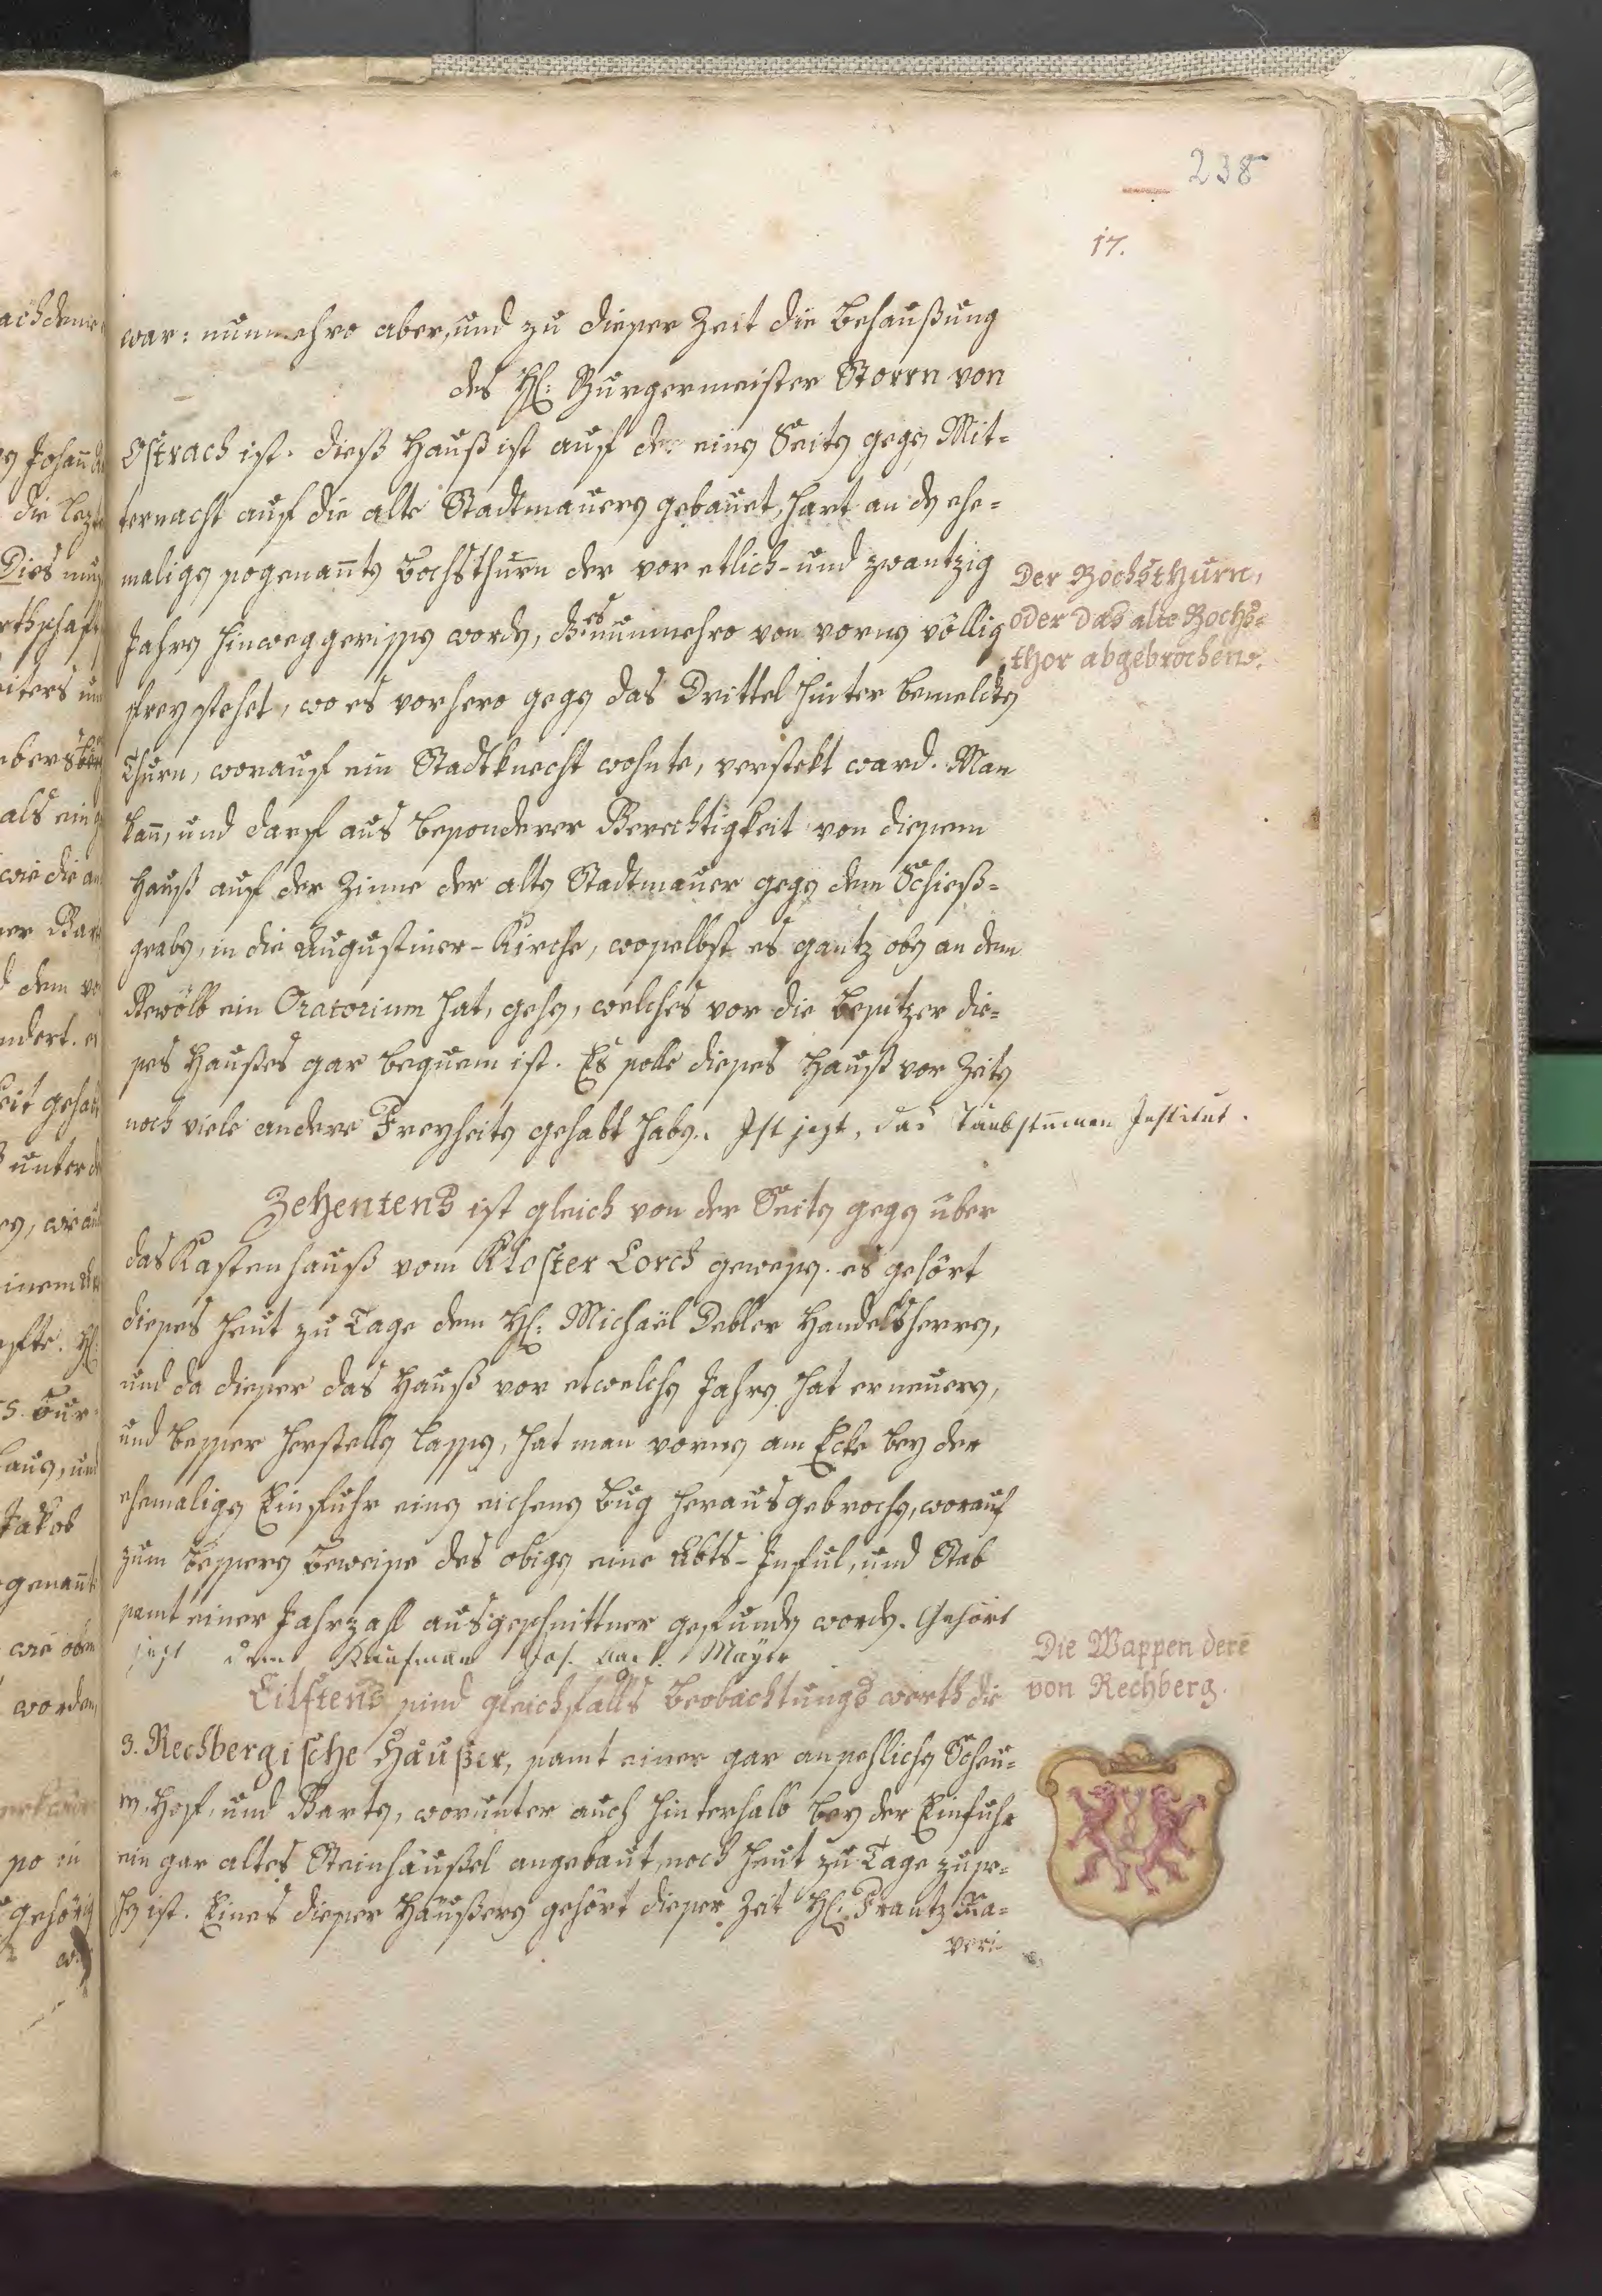 238
17.
war: nunmehro aber, und zu dieser Zeit die Behaußung
des H: Burgermeister Storrn von
Ostrach ist. dieß Hauß ist auf der einen Seiten gegen Mit-
ternacht auf die alte Stadtmauern gebauet, hart an den ehe-
maligen sogenannten Bochsthurn der vor etlich- und zwantzig
Jahren hinweggerissen worden, es nunmehro von vornen völlig
frey stehet, wo es vorhero gegen das Drittel hinter bemeldten
Thurn, worauf ein Stadtknecht wohnte, verstekt ward. Man
kan, und darf aus besonderer Gerechtigkeit von diesem
Hauß auf der Zinne der alten Stadtmauer gegen dem Schieß-
graben, in die Augustiner-Kirche, woselbst es gantz oben an dem
Gewölb ein Oratorium hat, gehen, welches vor die Besitzer die-
ses Haußes gar bequem ist. Es solle dieses Hauß vor Zeiten
noch viele andere Freyheiten gehabt haben. Ist jezt, das Taubstummen Institut.
Der Bochsthurn,
oder das alte Bochs-
thor abgebrochen.
Zehentens ist gleich von der Seiten gegen über
das Kastenhauß vom Kloster Lorch gewesen. es gehört
dieses heut zu Tage dem H: Michaël Debler Handelsherrn,
und da dieser das Hauß vor etwelchen Jahren hat erneuern,
und besser herstellen lassen, hat man vornen am Ecke bey der
ehemaligen Einfuhr einen eichenen Bug herausgebrochen, worauf
zum bessern Beweise des obigen eine Abts-Inful, und Stab
samt einer Jahrzahl ausgeschnittner gefunden worden. Gehört
jezt dem Kaufman Jos. Mayer
Eilftens sind gleichfalls Beobachtungs werth die
3. Rechbergische Häußer, samt einer gar ansehlichen Scheu-
ren, Hof, und Garten, worunter auch hinterhalb bey der Einfuhr
ein gar altes Steinhäußel angebaut, noch heut zu Tage zu se-
hen ist. Eines dieser Häußern gehört dieser Zeit H: Frantz Xa-
veri
Die Wappen dere
von Rechberg.